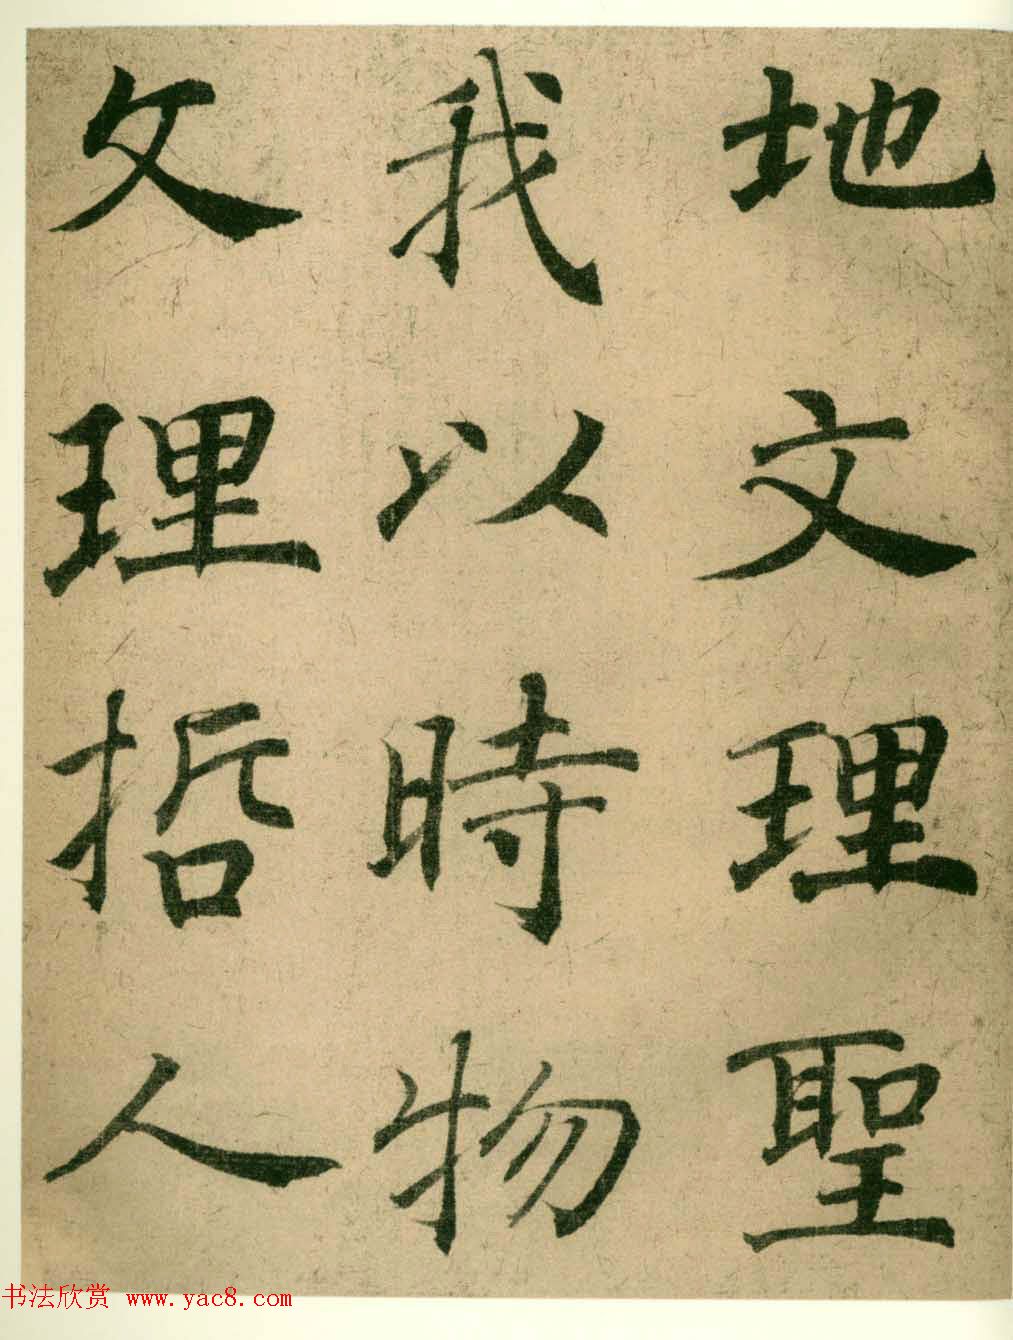 地文理聖
我以時物
文理哲人
书法欣赏 www.yac8.com